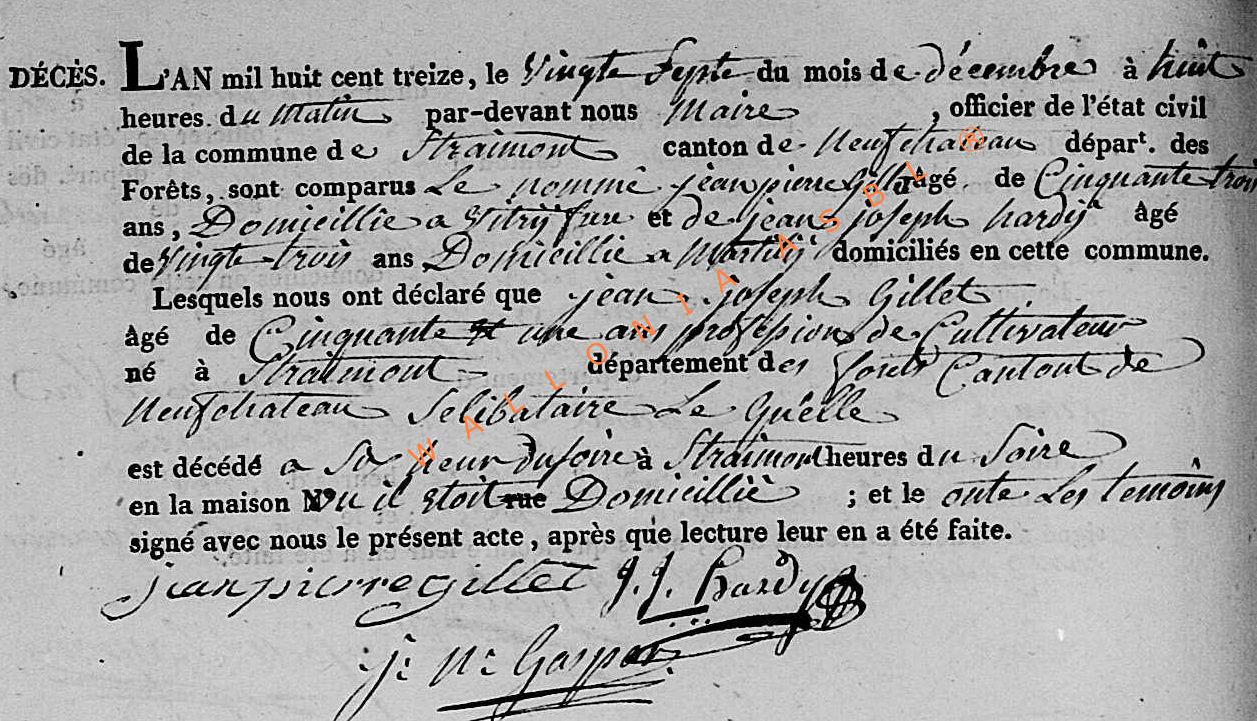 DÉCÈS. L'AN mil huit cent treize, le Vingte Septe du mois de décembre à huit
heures du Matin par-devant nous Maire , officier de l'état civil
de la commune de Straimont canton de Neufchateau départ. des
Forêts, sont comparus Le nommé jean pierre Gillet âgé de Cinquante trois
ans, Domicillie a Vitry et de jean joseph hardy âgé
de Vingte trois ans Domicillie a Martilly domiciliés en cette commune.
Lesquels nous ont déclaré que jean joseph Gillet
âgé de Cinquante et une ans profession de Cultivateur
né à Straimont département des forets Cantont de
Neufchateau Selibataire Le Quelle
est décédé a Six heur du soire à Straimont heures du Soire
en la maison ou il etoit rue Domicillié ; et le onte Les temoins
signé avec nous le présent acte, après que lecture leur en a été faite.
jean pierre gillet J. J. Hardy
j: N: Gaspar
WALLONIA ASBL ®